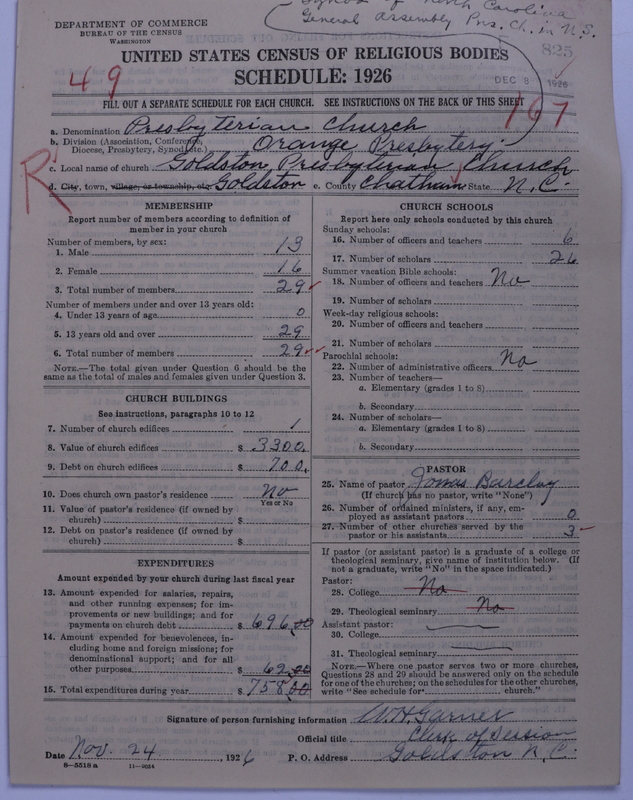 Synod of North Carolina
General Assembly Pres. Ch. in U.S.
DEPARTMENT OF COMMERCE
BUREAU OF THE CENSUS
WASHINGTON
825
UNITED STATES CENSUS OF RELIGIOUS BODIES
SCHEDULE: 1926
DEC 8 1926
49
167
FILL OUT A SEPARATE SCHEDULE FOR EACH CHURCH. SEE INSTRUCTIONS ON THE BACK OF THIS SHEET
R
a. Denomination Presbyterian Church
b. Division (Association, Conference, Diocese, Presbytery, Synod, etc.) Orange Presbytery
c. Local name of church Goldston Presbyterian Church
d. City, town, village, or township, etc. Goldston e. County Chatham State N.C.
MEMBERSHIP
Report number of members according to definition of
member in your church
Number of members, by sex:
1. Male 13
2. Female 16
3. Total number of members 29
Number of members under and over 13 years old:
4. Under 13 years of age 0
5. 13 years old and over 29
6. Total number of members 29
NOTE.—The total given under Question 6 should be
same as the total of males and females given under Question 3.
CHURCH BUILDINGS
See instructions, paragraphs 10 to 12
7. Number of church edifices 1
8. Value of church edifices $ 3300.
9. Debt on church edifices $ 700.
10. Does church own pastor's residence No
Yes or No
11. Value of pastor's residence (if owned by
church) $
12. Debt on pastor's residence (if owned by
church) $
EXPENDITURES
Amount expended by your church during last fiscal year
13. Amount expended for salaries, repairs,
and other running expenses; for im-
provements or new buildings; and for
payments on church debt $ 696.00
14. Amount expended for benevolences, in-
cluding home and foreign missions; for
denominational support; and for all
other purposes $ 62.00
15. Total expenditures during year $ 758.00
CHURCH SCHOOLS
Report here only schools conducted by this church
Sunday schools:
16. Number of officers and teachers 6
17. Number of scholars 26
Summer vacation Bible schools:
18. Number of officers and teachers No
19. Number of scholars
Week-day religious schools:
20. Number of officers and teachers
21. Number of scholars
Parochial schools:
22. Number of administrative officers No
23. Number of teachers—
a. Elementary (grades 1 to 8)
b. Secondary
24. Number of scholars—
a. Elementary (grades 1 to 8)
b. Secondary
PASTOR
25. Name of pastor Jonas Barclay
(If church has no pastor, write "None")
26. Number of ordained ministers, if any, em-
ployed as assistant pastors 0
27. Number of other churches served by the
pastor or his assistants 3
If pastor (or assistant pastor) is a graduate of a college or
theological seminary, give name of institution below. (If
not a graduate, write "No" in the space indicated.)
Pastor:
28. College No
29. Theological seminary No
Assistant pastor:
30. College
31. Theological seminary
NOTE.—Where one pastor serves two or more churches,
Questions 28 and 29 should be answered only on the schedule
for one of the churches; on the schedules for the other churches,
write "See schedule for church."
Signature of person furnishing information W.H. Garner
Official title Clerk of Session
Date Nov. 24, 1926 P. O. Address Goldston N.C.
8—5518 a 11—9024